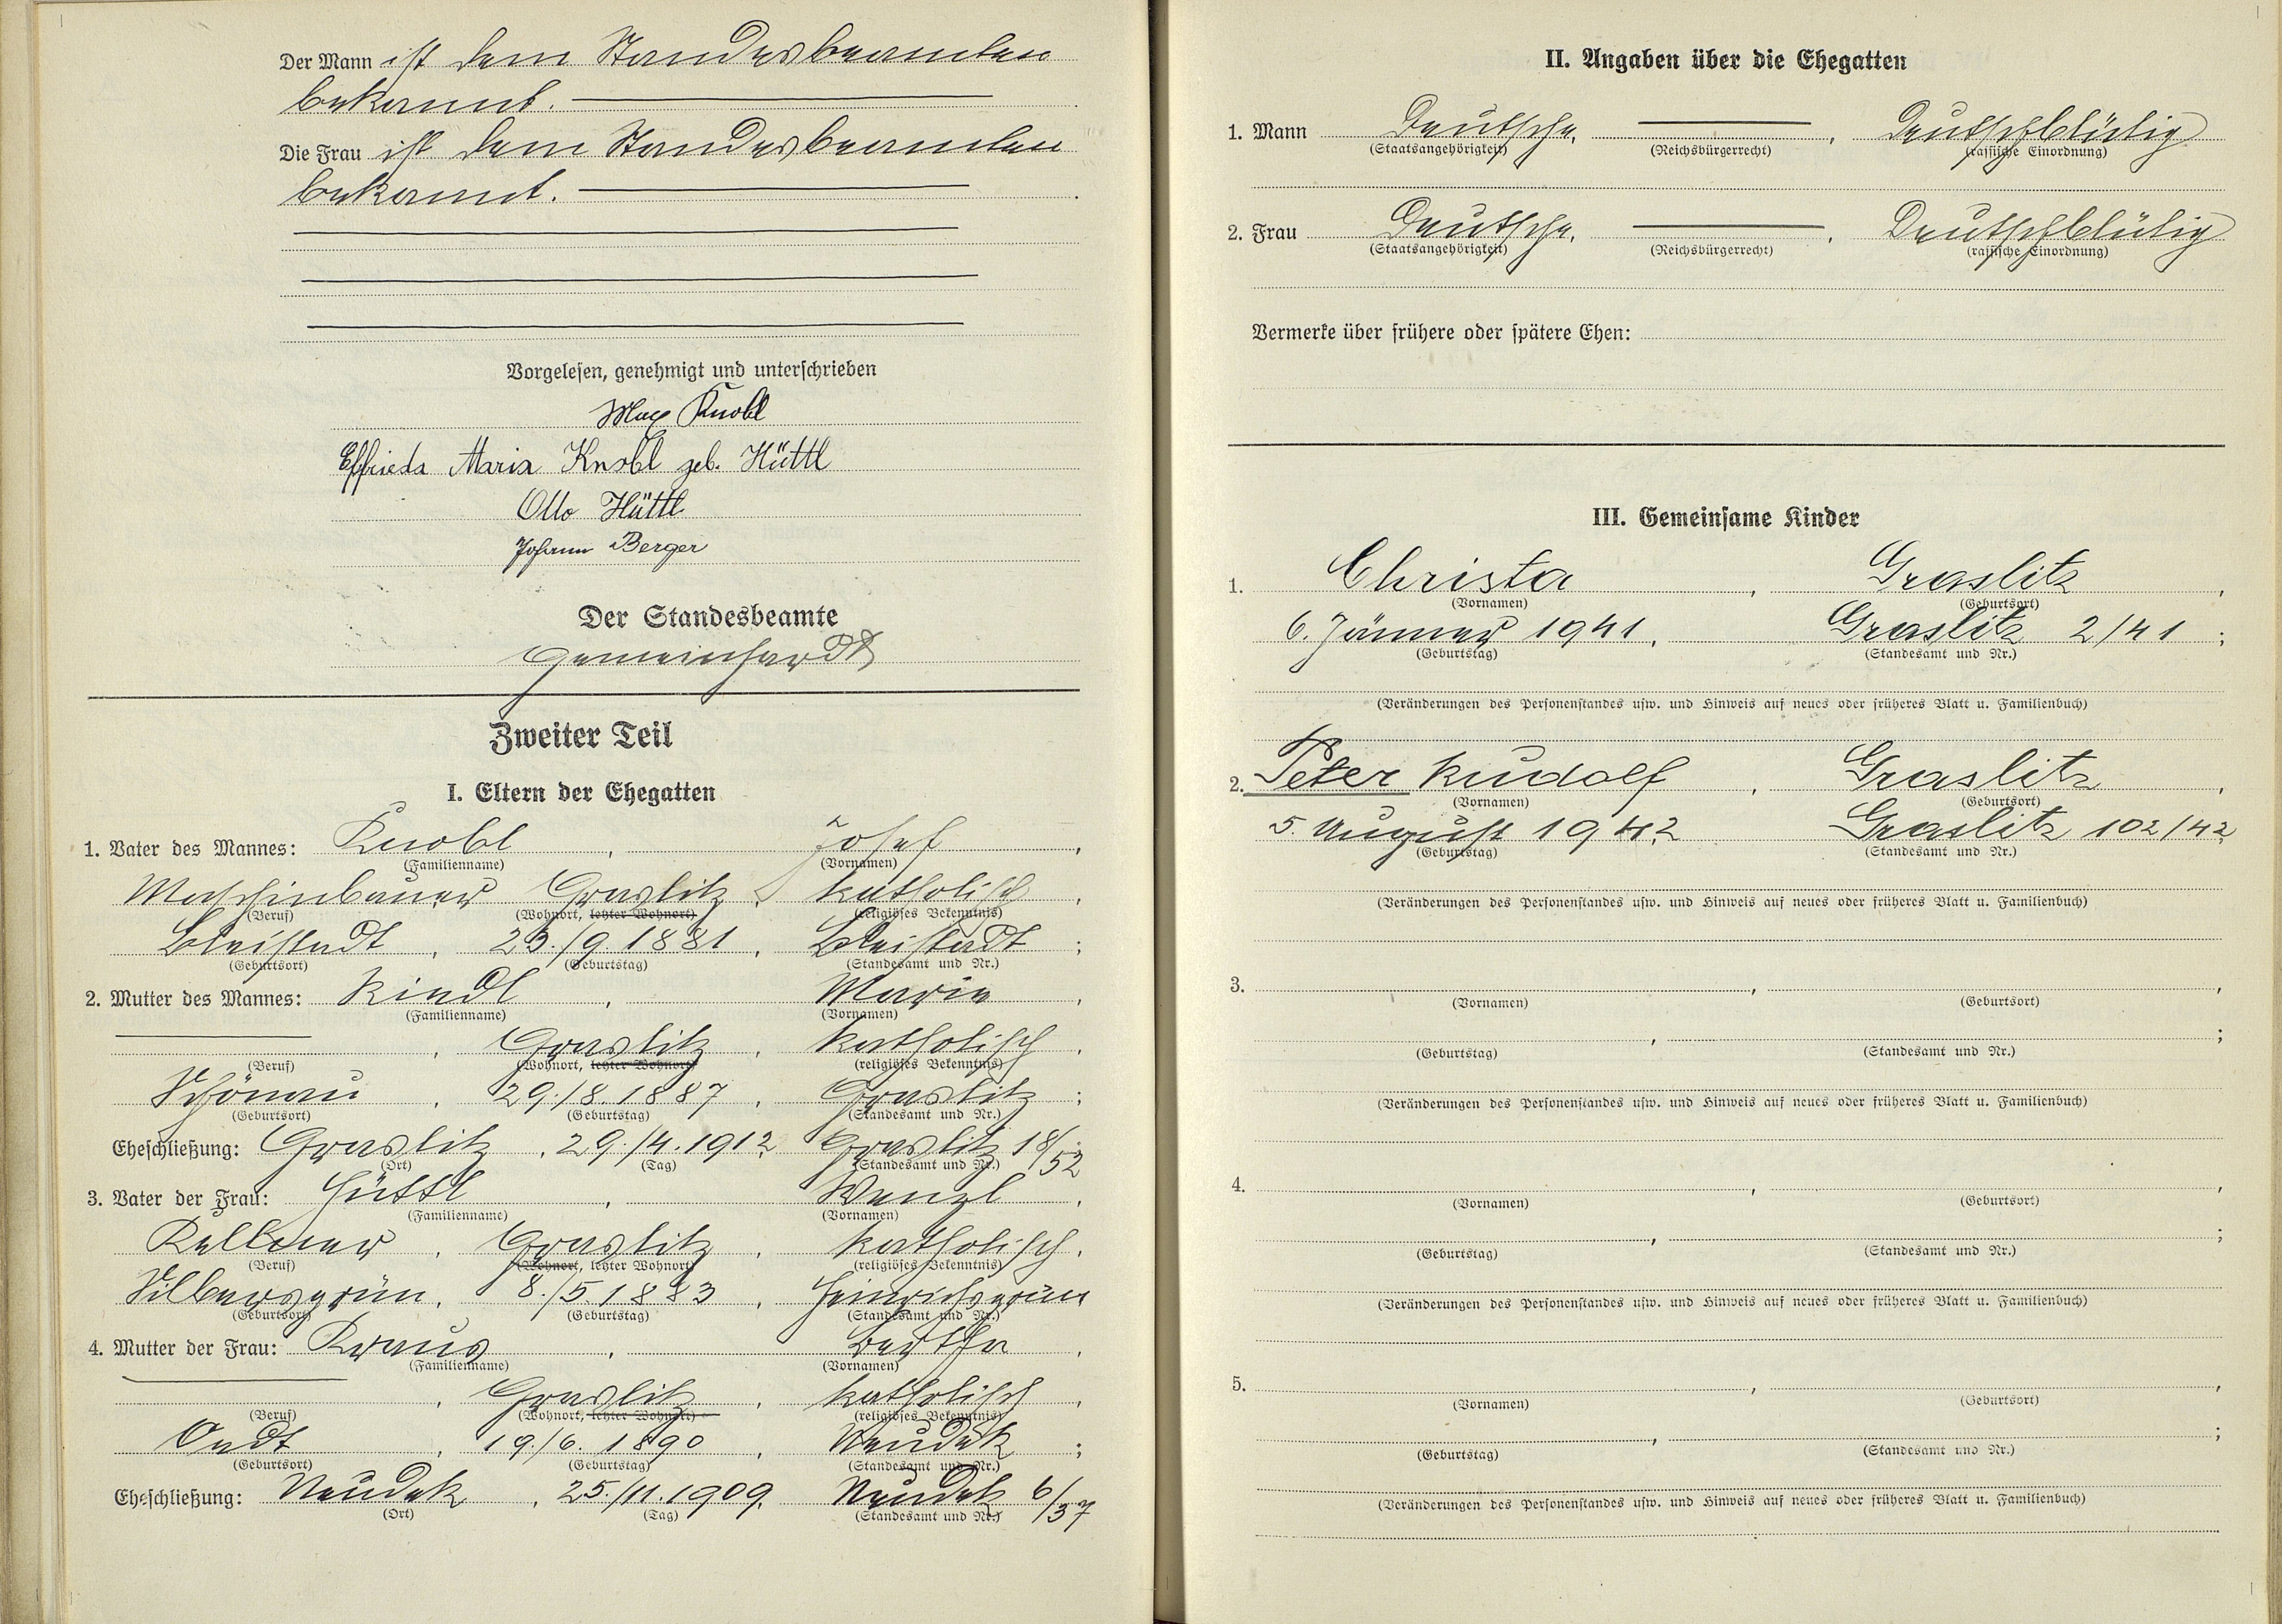 Der Mann ist dem Standesbeamten
bekannt.
Die Frau ist dem Standesbeamten
bekannt.
Vorgelesen, genehmigt und unterschrieben
Max Knobl
Elfrieda Maria Knobl geb. Hüttl
Otto Hüttl
Johann Berger
Der Standesbeamte
Gemeinhardt
Zweiter Teil
I. Eltern der Ehegatten
1. Vater des Mannes: Knobl, Josef,
(Familienname) (Vornamen)
Maschinbauer Graslitz, katholisch,
(Beruf) (Wohnort, letzter Wohnort) (religiöses Bekenntnis)
Bleistadt, 23./9.1881, Bleistadt;
(Geburtsort) (Geburtstag) (Standesamt und Nr.)
2. Mutter des Mannes: Kindl, Marie,
(Familienname) (Vornamen)
, Graslitz, katholisch,
(Beruf) (Wohnort, letzter Wohnort) (religiöses Bekenntnis)
Schönau, 29./8.1887, Graslitz;
(Geburtsort) (Geburtstag) (Standesamt und Nr.)
Eheschließung: Graslitz, 29./4.1912 Graslitz 18/52
(Ort) (Tag) (Standesamt und Nr.)
3. Vater der Frau: Hüttl, Wenzl,
(Familienname) (Vornamen)
Kellner, Graslitz, katholisch,
(Beruf) (Wohnort, letzter Wohnort) (religiöses Bekenntnis)
Silbersgrün, 8./5.1883, Heinrichsgrün
(Geburtsort) (Geburtstag) (Standesamt und Nr.)
4. Mutter der Frau: Kraus, Bertha,
(Familienname) (Vornamen)
, Graslitz, katholisch,
(Beruf) (Wohnort, letzter Wohnort) (religiöses Bekenntnis)
, 19./6.1890, Neudek;
(Geburtsort) (Geburtstag) (Standesamt und Nr.)
Eheschließung: Neudek, 25./11.1909. Neudek 6/37
(Ort) (Tag) (Standesamt und Nr.)
II. Angaben über die Ehegatten
1. Mann Deutsche, , Deutschblütig
(Staatsangehörigkeit) (Reichsbürgerrecht) (rassische Einordnung)
2. Frau Deutsche, , Deutschblütig
(Staatsangehörigkeit) (Reichsbürgerrecht) (rassische Einordnung)
Vermerke über frühere oder spätere Ehen:
III. Gemeinsame Kinder
1. Christa, Graslitz,
(Vornamen) (Geburtsort)
6. Jänner 1941, Graslitz 2/41;
(Geburtstag) (Standesamt und Nr.)
(Veränderungen des Personenstandes usw. und Hinweis auf neues oder früheres Blatt u. Familienbuch)
2. Peter Rudolf, Graslitz,
(Vornamen) (Geburtsort)
5. August 1942 Graslitz 102/42
(Geburtstag) (Standesamt und Nr.)
(Veränderungen des Personenstandes usw. und Hinweis auf neues oder früheres Blatt u. Familienbuch)
3. , ,
(Vornamen) (Geburtsort)
, ;
(Geburtstag) (Standesamt und Nr.)
(Veränderungen des Personenstandes usw. und Hinweis auf neues oder früheres Blatt u. Familienbuch)
4. , ,
(Vornamen) (Geburtsort)
, ;
(Geburtstag) (Standesamt und Nr.)
(Veränderungen des Personenstandes usw. und Hinweis auf neues oder früheres Blatt u. Familienbuch)
5. , ,
(Vornamen) (Geburtsort)
, ;
(Geburtstag) (Standesamt und Nr.)
(Veränderungen des Personenstandes usw. und Hinweis auf neues oder früheres Blatt u. Familienbuch)